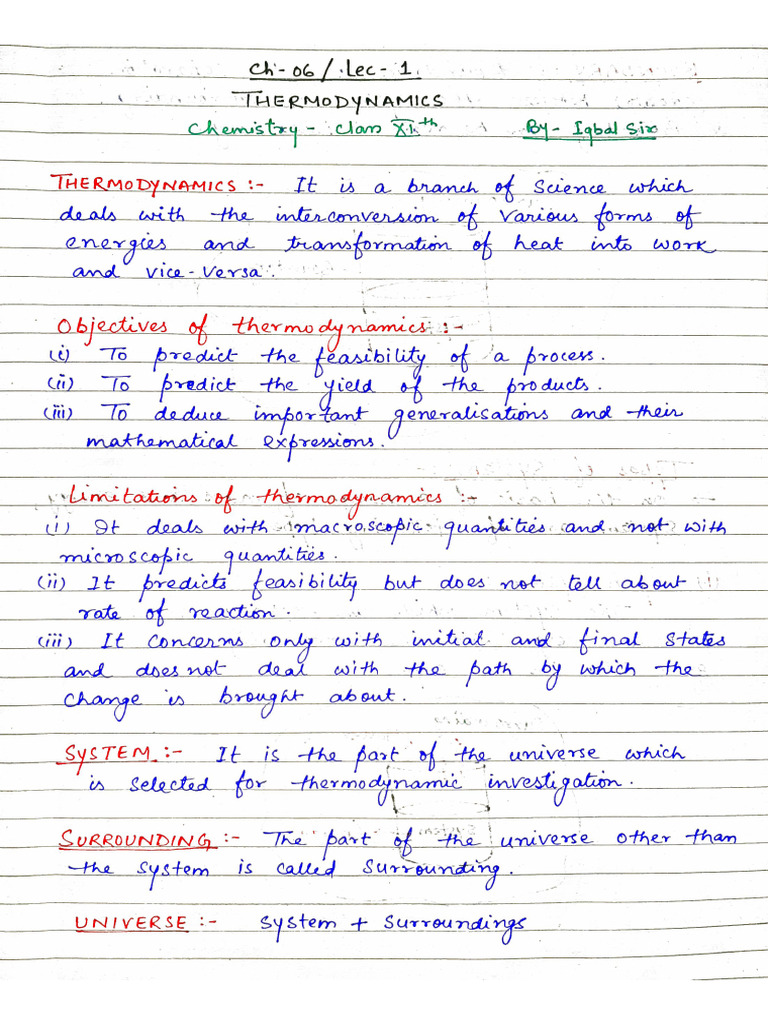 Ch-06/Lec-1
THERMODYNAMICS
Chemistry- Class XIth By- Iqbal Sir
THERMODYNAMICS:- It is a branch of Science which
deals with the interconversion of various forms of
energies and transformation of heat into work
and vice-versa.
Objectives of thermodynamics:-
(i) To predict the feasibility of a process.
(ii) To predict the yield of the products.
(iii) To deduce important generalisations and their
mathematical expressions.
Limitations of thermodynamics:-
(i) It deals with macroscopic quantities and not with
microscopic quantities.
(ii) It predicts feasibility but does not tell about
rate of reaction.
(iii) It concerns only with initial and final states
and does not deal with the path by which the
change is brought about.
SYSTEM:- It is the part of the universe which
is selected for thermodynamic investigation.
SURROUNDING:- The part of the universe other than
the system is called surrounding.
UNIVERSE:- System + Surroundings